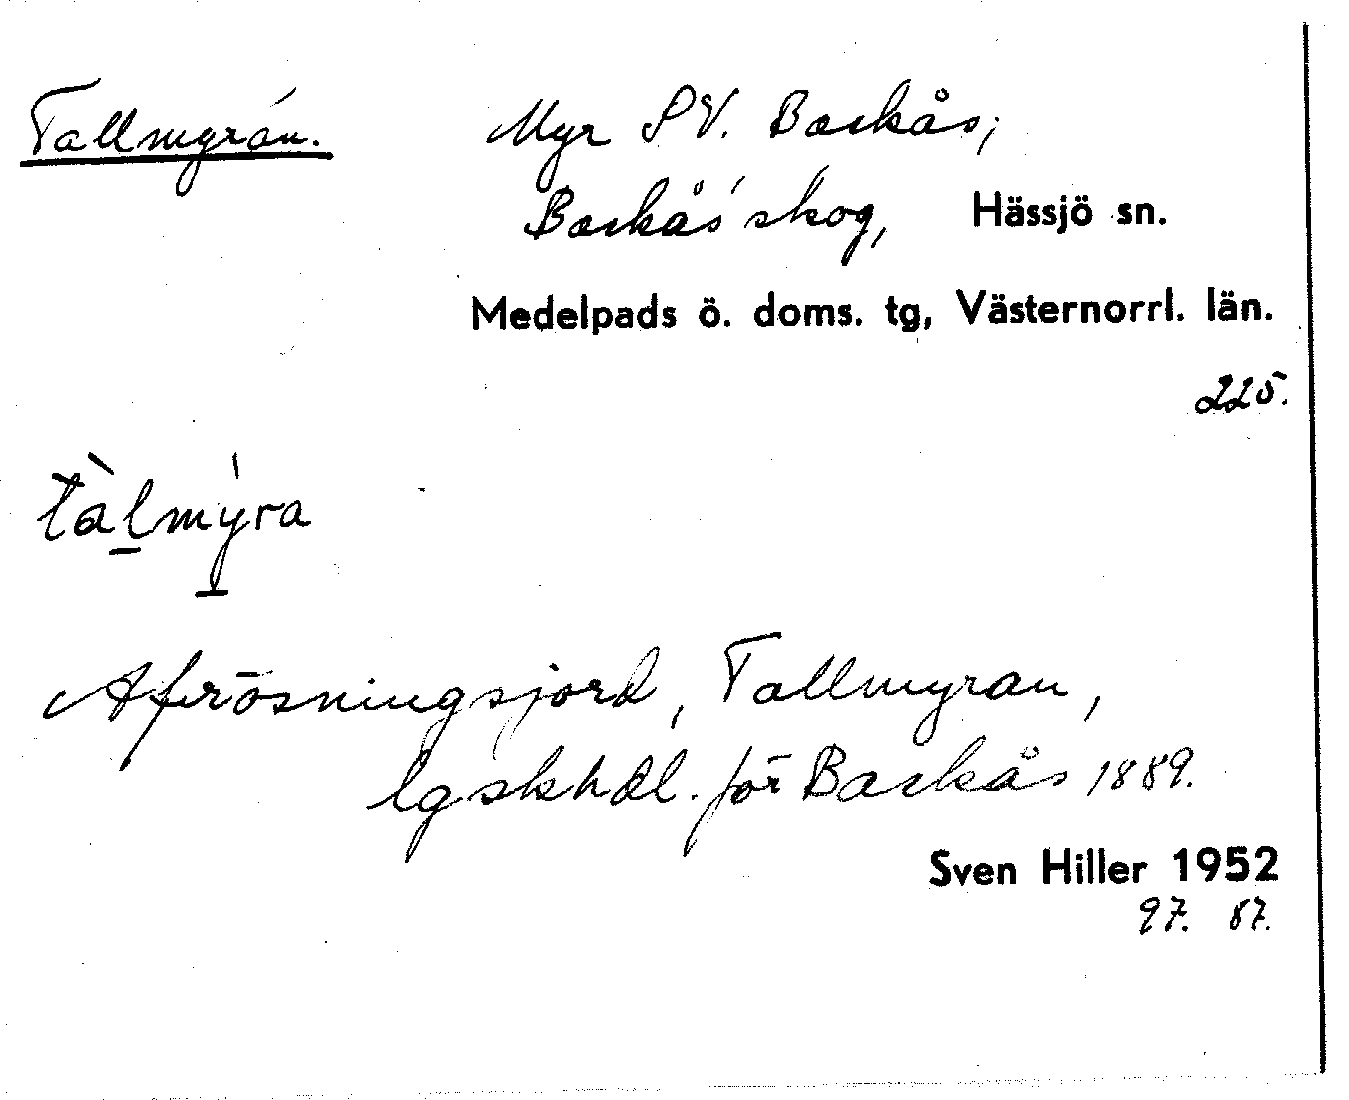 Tallmyran. Myr SV. Backås,
Backås' skog, Hässjö sn.
Medelpads ö. doms. tg, Västernorrl. län.
225.
tàlmýra
Afrösningsjord, Tallmyran,
lgskhdl. för Backås 1889.
Sven Hiller 1952
97. 87.